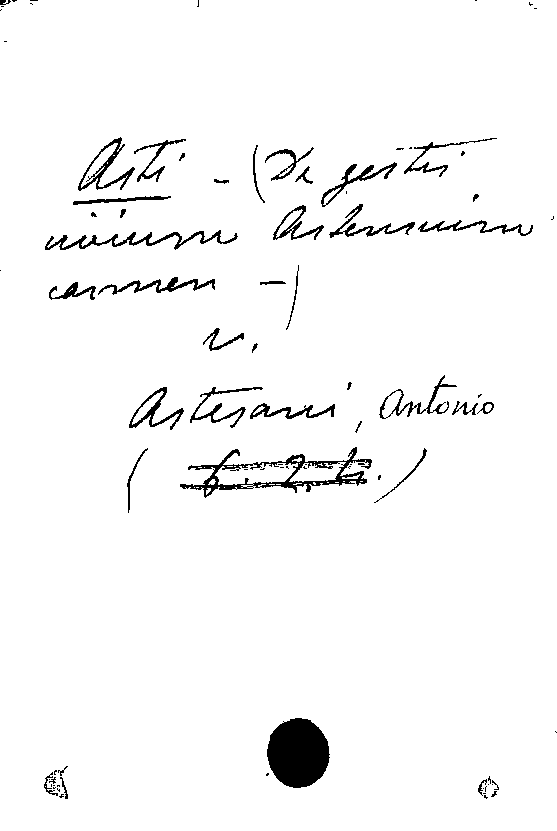 Asti - (De gestis
civium Astensium
carmen -)
v.
Astesani, Antonio
( )